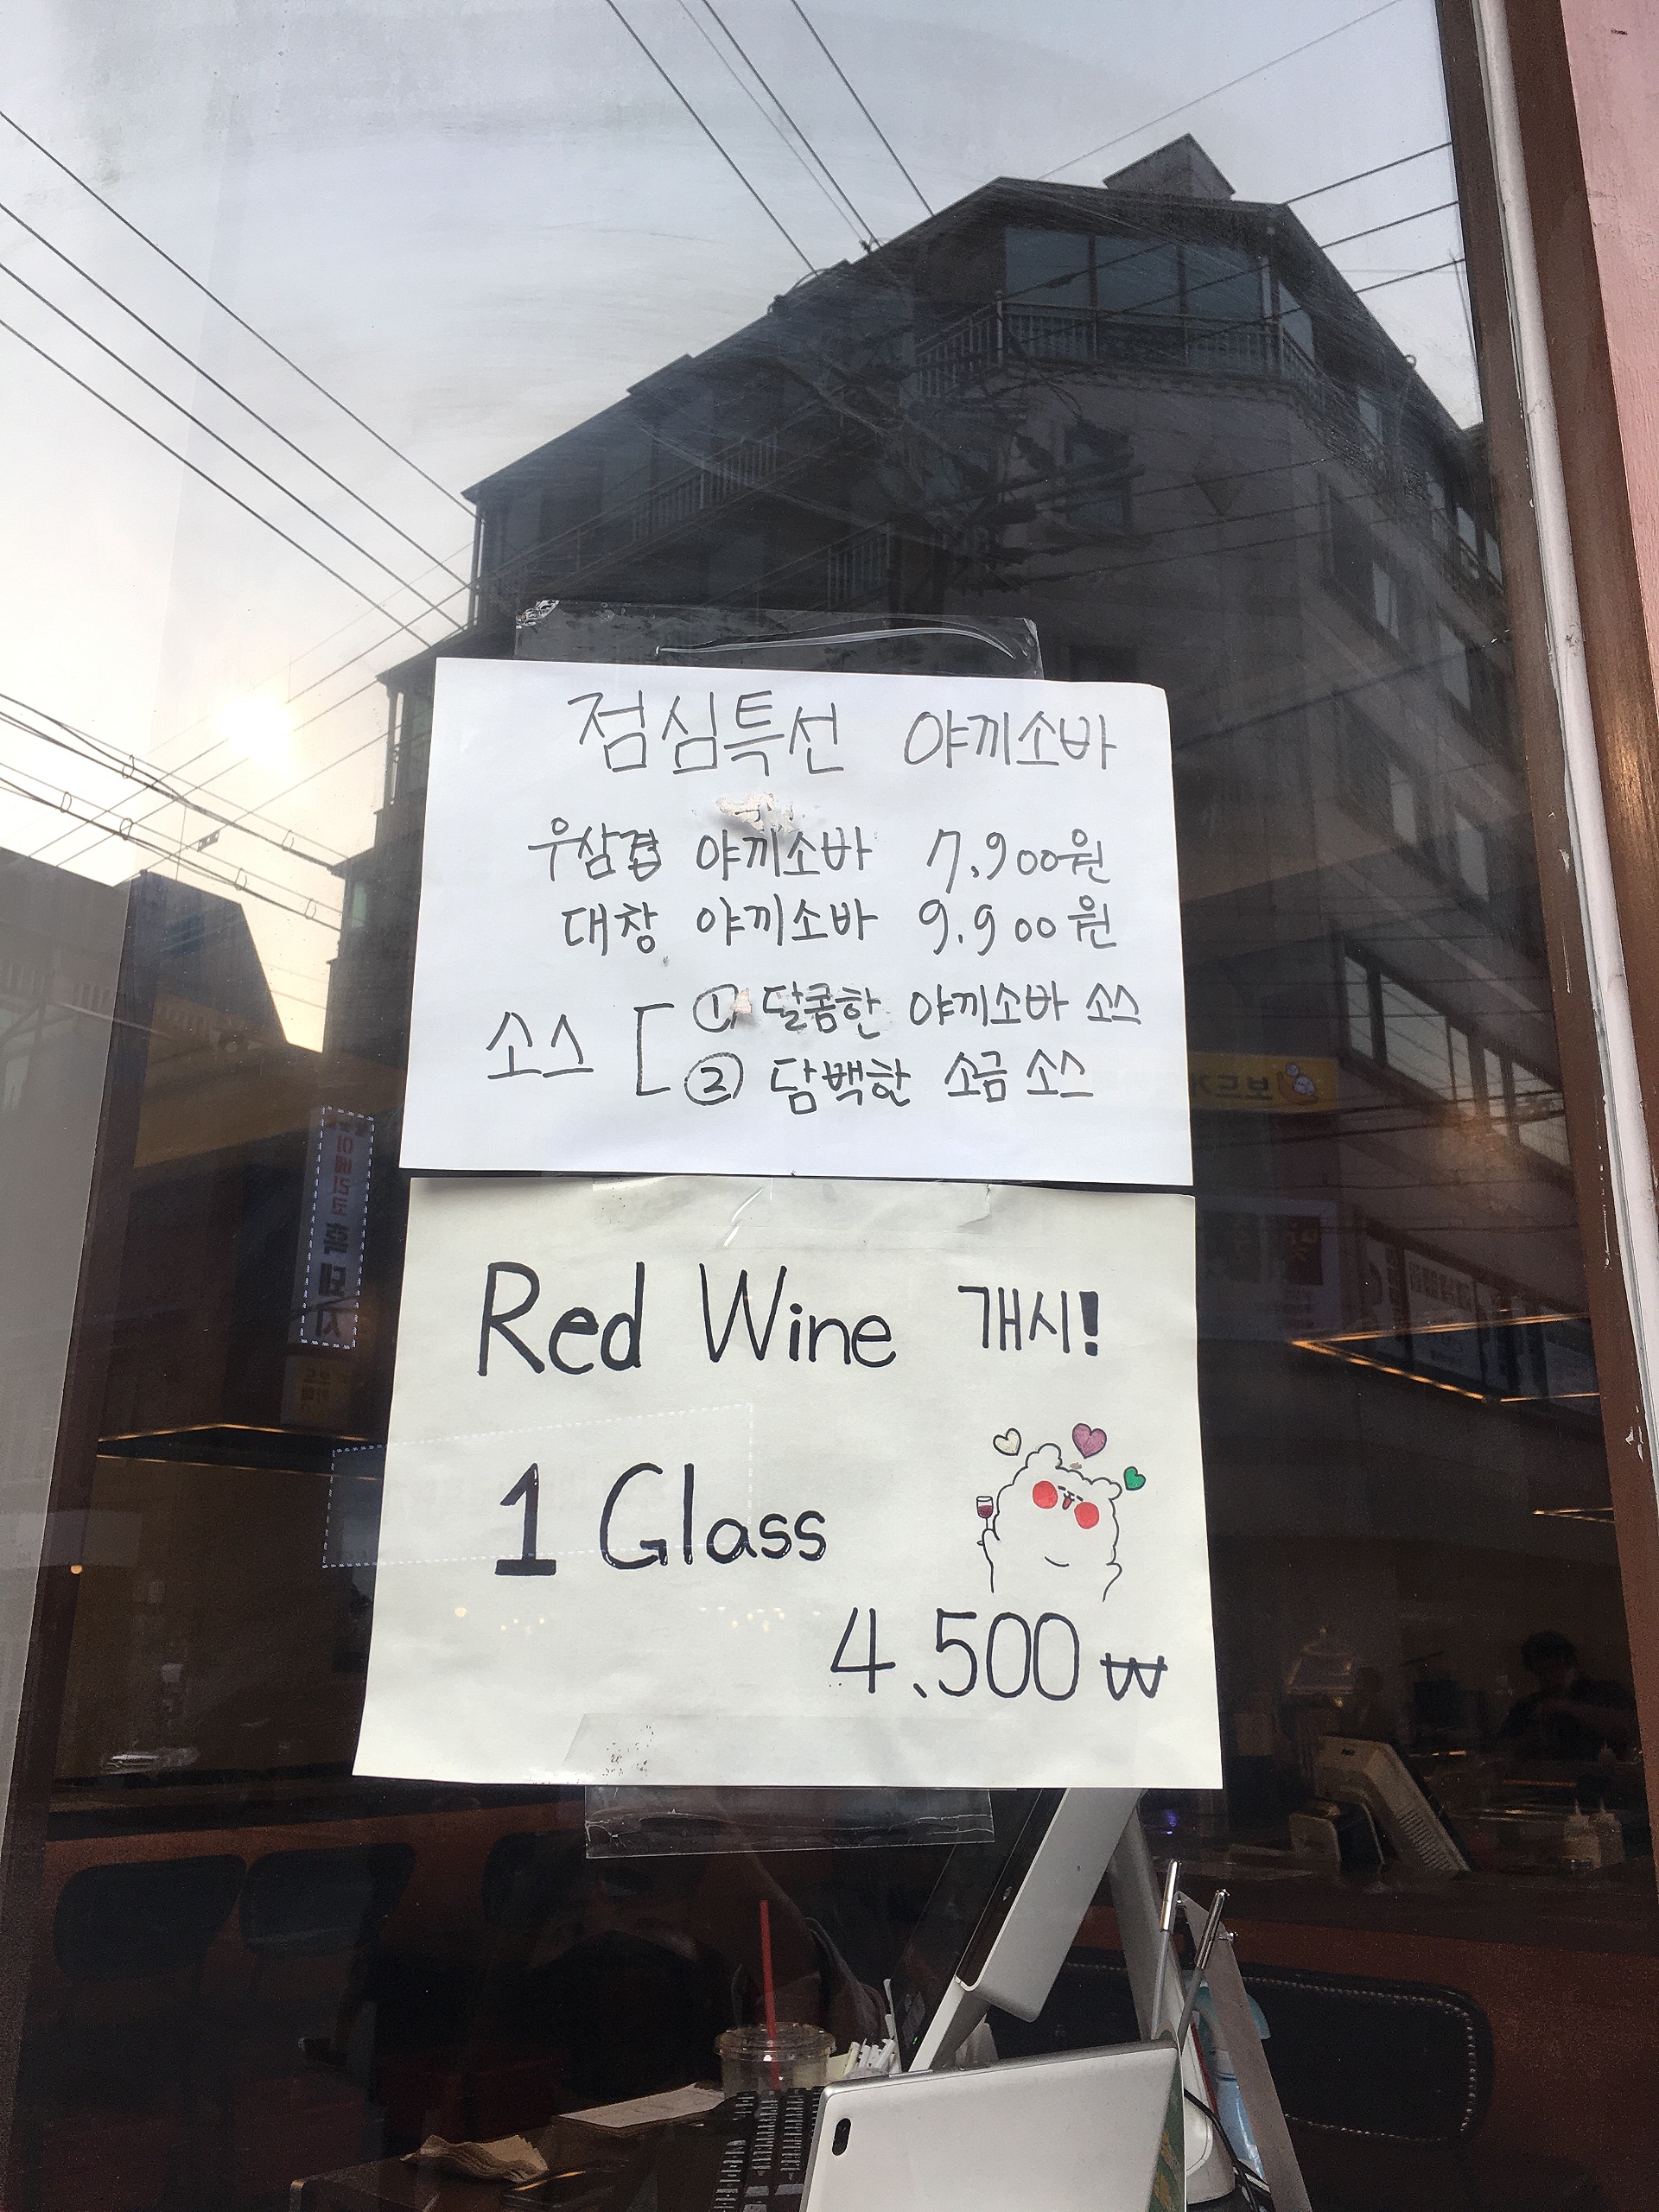 점심특선 야끼소바
우삼겹 야끼소바 7.900원
대창 야끼소바 9.900원
소스 ① 달콤한 야끼소바 소스
② 담백한 소금 소스
Red Wine 개시!
1 Glass
4.500₩
이베리코 흑돼지
보드게